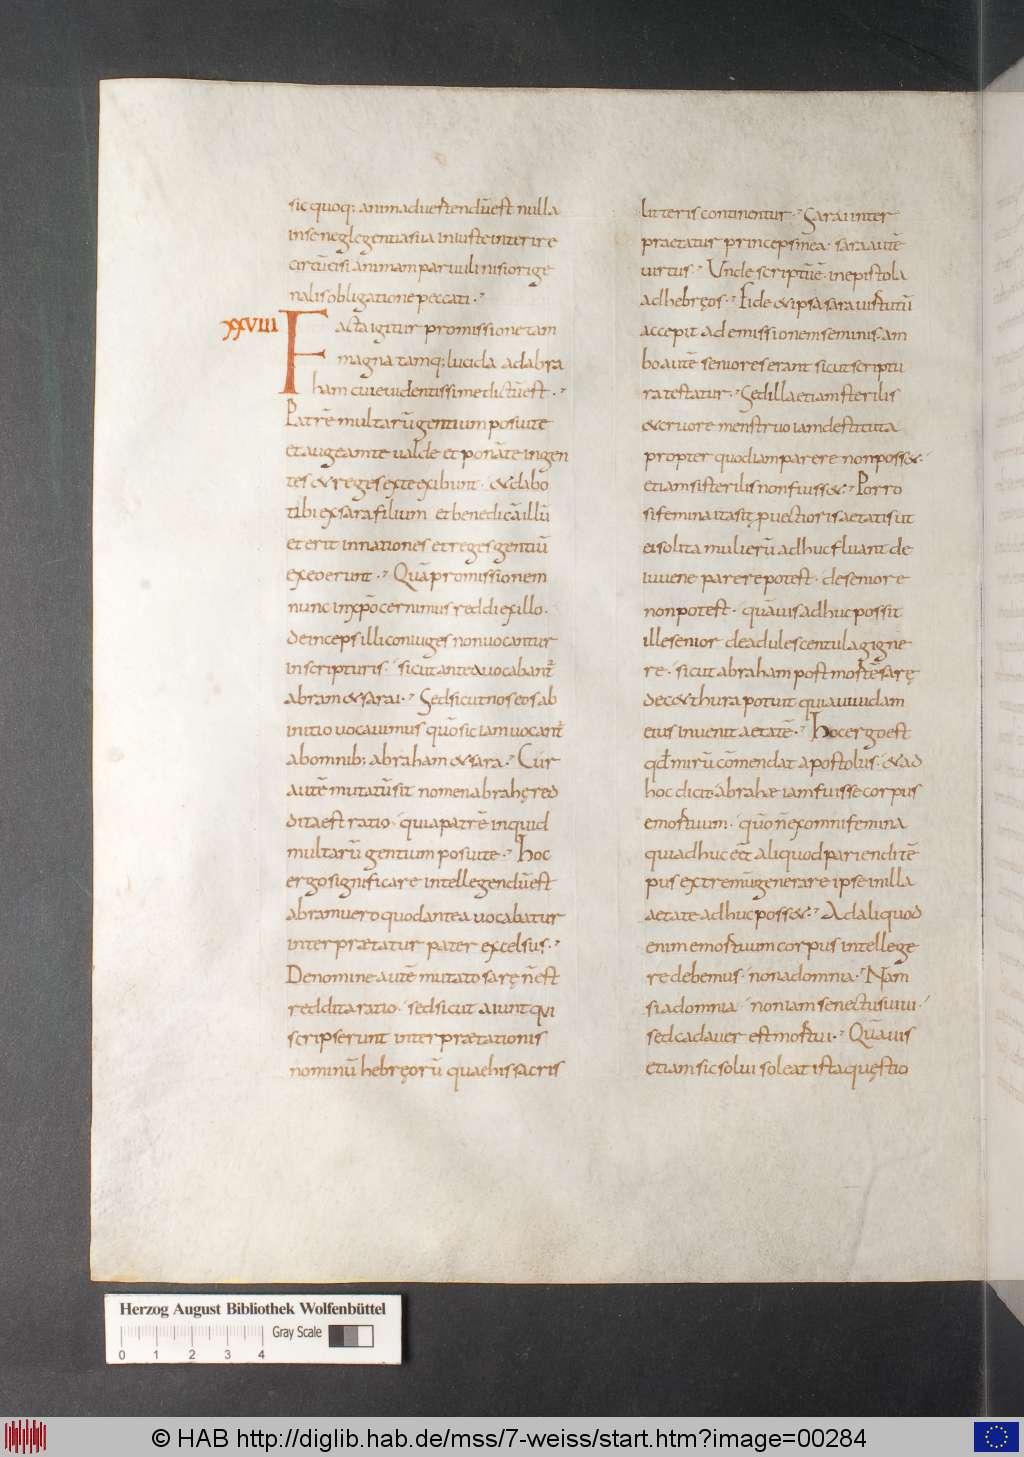 sic quoq; animaduertendūest nulla
inse neglegentia sua iniuste interire
circūcisi animam paruuli nisi orige
nalis obligatione peccati.
xxviii
Facta igitur promissione tam
magna tamq; lucida adabra
ham cui euidentissime dictūest.
Patrē multarū gentium posuite
et augeamte ualde et ponā te ingen
tes & reges exte exibunt. & dabo
tibi exsara filium et benedicā illū
et erit innationes et reges gentiū
exeo erunt. Quā promissionem
nunc inxp̄o cernimus reddi exillo.
deinceps illi coniuges non uocantur
inscripturis. sicut antea uocabant᷑
abram & sarai. Sed sicut nos eos ab
initio uocauimus quō sic iam uocant᷑
abomnib; abraham & sara. Cur
autē mutatūsit nomen abrahę red
dita est ratio. quia patrē inquid
multarū gentium posuite. Hoc
ergo significare intellegendūest
abram uero quod antea uocabatur
interprætatur pater excelsus.
Denomine autē mutato sarę n̄est
reddita ratio. sed sicut aiunt qui
scripserunt interprætationis
nominū hebręorū quae his sacris
litteris continentur. Sarai inter
praetatur princeps mea. sara autē
uirtus. Unde scriptūē. inepistola
adhebręos. Fide & ipsa sara uirtutū
accepit ad emissionem seminis. am
bo autē seniores erant sicut scriptu
ra testatur. Sed illa etiam sterilis
& cruore menstruo iam destituta
propter quod iam parere non poss&.
etiam si sterilis non fuiss&. Porro
si femina ita sit puectioris aetatis ut
ei solita mulierū adhuc fluant de
iuuene parere potest. de seniore
non potest. quāuis adhuc possit
ille senior de adulescentula gigne
re. sicut abraham post mortē sarę
dec&thura potuit quia uiuidam
eius inuenit aetatē. Hoc ergo est
qđ mirū cōmendat apostolus. & ad
hoc dicit abrahæ iam fuisse corpus
emortuum. quō n̄ exomni femina
qui adhuc eēt aliquod pariendi tē
pus extremū generare ipse in illa
aetate adhuc poss&. Ad aliquod
enim emortuum corpus intellege
re debemus. non ad omnia. Nam
si ad omnia. non iam senectus uiui.
sed cadauer est mortui. Quāuis
etiam sic solui soleat ista quęstio
Herzog August Bibliothek Wolfenbüttel
Gray Scale
0 1 2 3 4
© HAB http://diglib.hab.de/mss/7-weiss/start.htm?image=00284